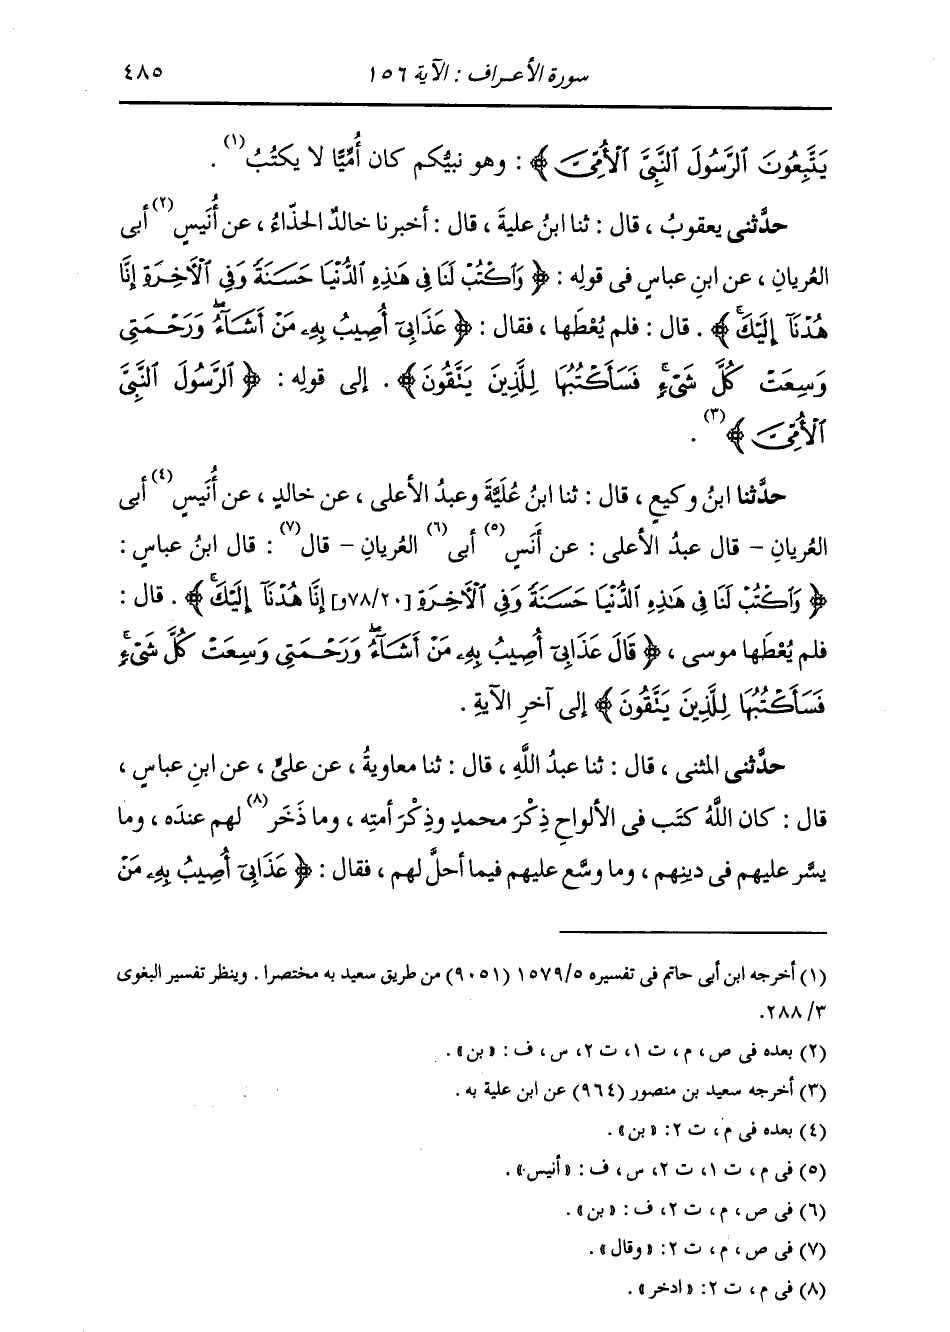 سورة الأعراف : الآية ١٥٦ ٤٨٥
يَتَّبِعُونَ ٱلرَّسُولَ ٱلنَّبِىَّ ٱلْأُمِّىَّ ﴾ : وهو نبيُّكم كان أُمِّيًّا لا يكتُبُ(١) .
حدَّثنى يعقوبُ ، قال : ثنا ابنُ عليةَ ، قال : أخبرنا خالدٌ الحذّاءُ ، عن أُنَيسٍ(٢) أبى
العُريانِ ، عن ابنِ عباسٍ فى قوله : ﴿ وَٱكْتُبْ لَنَا فِى هَٰذِهِ ٱلدُّنْيَا حَسَنَةً وَفِى ٱلْآخِرَةِ إِنَّا
هُدْنَآ إِلَيْكَ ۚ ﴾ . قال : فلم يُعْطَها ، فقال : ﴿ عَذَابِىٓ أُصِيبُ بِهِۦ مَنْ أَشَآءُ ۖ وَرَحْمَتِى
وَسِعَتْ كُلَّ شَىْءٍ ۚ فَسَأَكْتُبُهَا لِلَّذِينَ يَتَّقُونَ ﴾ . إلى قولِه : ﴿ ٱلرَّسُولَ ٱلنَّبِىَّ
ٱلْأُمِّىَّ ﴾(٣) .
حدَّثنا ابنُ وكيعٍ ، قال : ثنا ابنُ عُلَيَّةَ وعبدُ الأعلى ، عن خالدٍ ، عن أُنَيسٍ(٤) أبى
العُريانِ – قال عبدُ الأعلى : عن أَنَسٍ(٥) أبى(٦) العُريانِ – قال(٧) : قال ابنُ عباسٍ :
﴿ وَٱكْتُبْ لَنَا فِى هَٰذِهِ ٱلدُّنْيَا حَسَنَةً وَفِى ٱلْآخِرَةِ [٧٨/٢٠و] إِنَّا هُدْنَآ إِلَيْكَ ۚ ﴾ . قال :
فلم يُعْطَها موسى ، ﴿ قَالَ عَذَابِىٓ أُصِيبُ بِهِۦ مَنْ أَشَآءُ ۖ وَرَحْمَتِى وَسِعَتْ كُلَّ شَىْءٍ ۚ
فَسَأَكْتُبُهَا لِلَّذِينَ يَتَّقُونَ ﴾ إلى آخرِ الآيةِ .
حدَّثنى المثنى ، قال : ثنا عبدُ اللَّهِ ، قال : ثنا معاويةُ ، عن علىٍّ ، عن ابنِ عباسٍ ،
قال : كان اللَّهُ كتَب فى الألواحِ ذِكْرَ محمدٍ وذِكْرَ أمتِه ، وما ذَخَر(٨) لهم عندَه ، وما
يسَّر عليهم فى دينِهم ، وما وسَّع عليهم فيما أحلَّ لهم ، فقال : ﴿ عَذَابِىٓ أُصِيبُ بِهِۦ مَنْ
(١) أخرجه ابن أبى حاتم فى تفسيره ١٥٧٩/٥ (٩٠٥١) من طريق سعيد به مختصرا . وينظر تفسير البغوى
٢٨٨/٣.
(٢) بعده فى ص ، م ، ت ١، ت ٢، س ، ف : «بن» .
(٣) أخرجه سعيد بن منصور (٩٦٤) عن ابن علية به .
(٤) بعده فى م ، ت ٢: «بن» .
(٥) فى م ، ت ١، ت ٢، س ، ف : «أنيس» .
(٦) فى ص ، م ، ت ٢، ف : «بن» .
(٧) فى ص ، م ، ت ٢: «وقال» .
(٨) فى م ، ت ٢: «ادخر» .